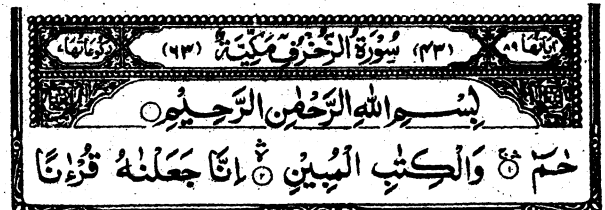 اٰیاتها ۸۹ (۴۳) سُوْرَةُ الزُّخْرُفِ مَكِّيَّةٌ (۶۳) رکوعاتها ۷
بِسْمِ اللهِ الرَّحْمٰنِ الرَّحِيْمِ
حٰمٓ ۱ وَالْكِتٰبِ الْمُبِيْنِ ۲ اِنَّا جَعَلْنٰهُ قُرْءٰنًا